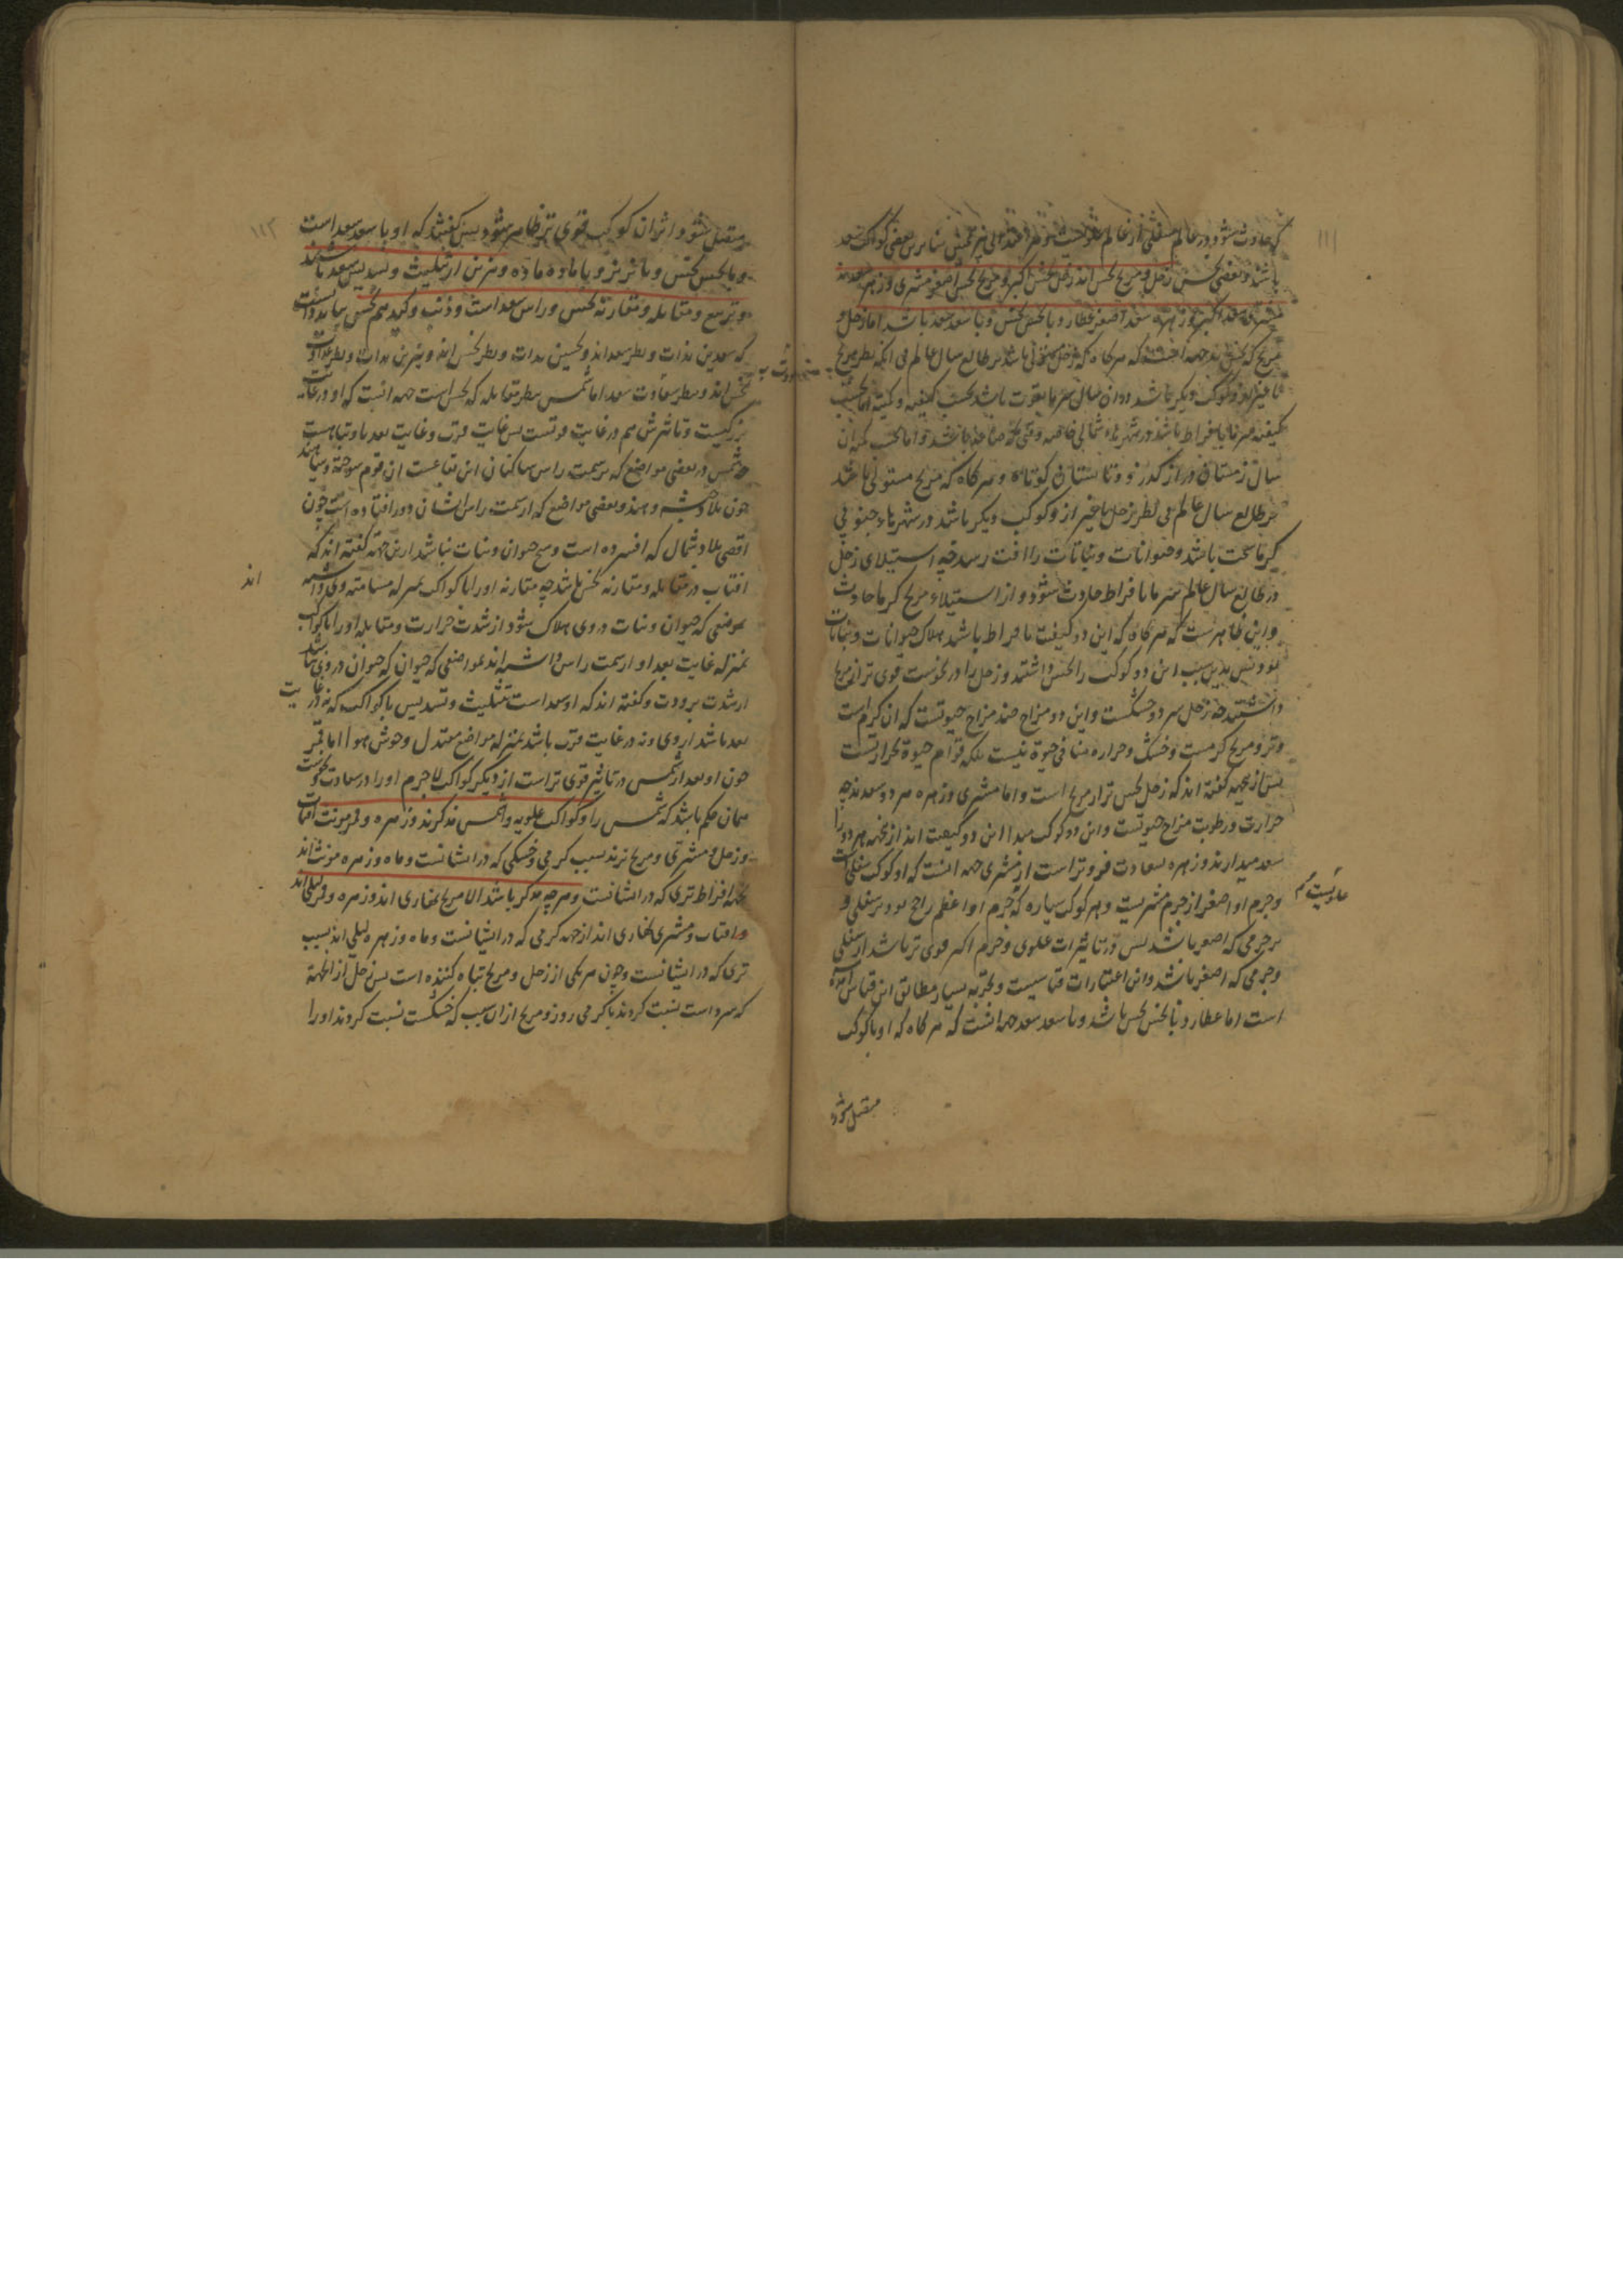 ۱۱۱
که حادث شود در عالم سفلی از عالم علویست بنابرین بعضی کواکب سعد
باشند و بعضی نحس زحل و مریخ نحس اند زحل نحس اکبر و مریخ نحس اصغر مشتری و زهره سعدند
مشتری سعد اکبر و زهره سعد اصغر عطارد با نحس نحس و با سعد سعد باشد اما زحل و
مریخ که نحس اند جهة انست که هرکاه که زحل مستولی باشد بر طالع سال عالم بی انکه نظر مریخ
یا غیر او از کوکب دیگر باشد در ان سال سرما بقوت باشد بحسب کیفیه و کمیته اما بحسب
کیفیته سرما بافراط باشد در شهرهاء شمالی خاصه و اما بحسب کم ان
سال زمستان دراز کذرد و تابستان کوتاه و هرکاه که مریخ مستولی باشد
بر طالع سال عالم بی نظر زحل یا غیر از و کوکب دیگر باشد در شهرهاء جنوبی
کرما سخت باشد و حیوانات و نباتات را افت رسد چه استیلای زحل
در طالع سال عالم سرما بافراط حادث شود و از استیلاء مریخ کرما حادث
و این ظاهرست که هرکاه که این دو کیفیت بافراط باشد هلاک حیوانات و نباتات
بود پس بدین سبب این دو کوکب را نحس داشتند و زحل را در نحوست قوی تر از مریخ
دانستند چه زحل سرد و خشکست و این دو مزاج ضد مزاج حیوتست که ان کرم است
و تر و مریخ کرمست و خشک و حراره منافی حیوة نیست بلکه قوام حیوة بحرارتست
پس ازین جهه کفته اند که زحل نحس تر از مریخ است و اما مشتری و زهره هر دو سعدند چه
حرارت و رطوبت مزاج حیوتست و این دو کوکب مبدا این دو کیفیت اند ازین جهه هر دو را
سعد میدارند و زهره بسعادت فروتر است از مشتری جهه انست که او کوکب سفلی است
و جرم او اصغر از جرم مشتریست و هر کوکب سیاره که جرم او اعظم راجح بود بر سفلی و
بر جرمی که اصغر باشد پس در تاثیرات علوی و جرم اکبر قوی تر باشد از سفلی
و جرمی که اصغر باشد و این اعتبارات قیاسیست و تجربه بسیار مطابق این قیاس امده
است اما عطارد با نحس نحس باشد و با سعد سعد جهه انست که هرکاه که او با کوکب
متصل شود
۱۱۲
متصل شود اثر ان کوکب قوی تر ظاهر شود پس کفتند که او با سعد سعد است
و با نحس نحس و با نر نر و با ماده ماده و نیرین از تثلیث و تسدیس سعد باشند
و تربیع و مقابله و مقارنه نحس و راس سعد است و ذنب و کید هم نحس بباید دانست
که سعدین بذات و نظر سعد اند و نحسین بذات و نظر نحس اند و نیرین بذات و نظر عداوت
نحس اند و بنظر سعادت سعد اما شمس بنظر مقابله که نحس است جهه انست که او در غایت
بزرکیست و تاثیرش هم در غایت قوتست پس غایت قرب و غایت بعد با و تباهیست
چه شمس در بعضی مواضع که بر سمت راس ساکنان ان بقاعست ان قوم سوخته و سیاهند
چون بلاد حبشه و هند و بعضی مواضع که از سمت راس ایشان دور افتاده است چون
اقصی بلاد شمال که افسرده است و هیچ حیوان و نبات نباشد ازین جهة کفته اند که
افتاب در مقابله و مقارنه نحس باشد چه مقارنه او را با کواکب بمنزله مسامته وی داشته
اند
بموضعی که حیوان و نبات در وی هلاک شود از شدت حرارت و مقابله او را با کواکب
بمنزله غایت بعد او از سمت راس داشته اند بمواضعی که حیوان در وی نباشد
از شدت برودت و کفته اند که او سعد است بتثلیث و تسدیس با کواکب که نه در غایت
بعد باشد از وی و نه در غایت قرب باشد بمنزله مواضع معتدل و خوش هوا اما قمر
چون او بعد از شمس در تاثیر قوی تر است از دیکر کواکب لاجرم او را در سعادت و نحوست
همان حکم باشد که شمس را و کواکب علویه و شمس مذکرند و زهره و قمر مونث افتاب
و زحل و مشتری و مریخ نرند بسبب کرمی و خشکی که در ایشانست و ماه و زهره مونث اند
بجهه افراط تری که در ایشانست و هرچه مذکر باشد الا مریخ نهاری اند و زهره و قمر لیلی اند
و افتاب و مشتری نهاری اند از جهه کرمی که در ایشانست و ماه و زهره لیلی اند بسبب
تری که در ایشانست و چون هر یکی از زحل و مریخ تباه کننده است پس زحل از انجهة
که سرد است نسبت کردند با کرمی روز و مریخ از ان سبب که خشکست نسبت کردند او را